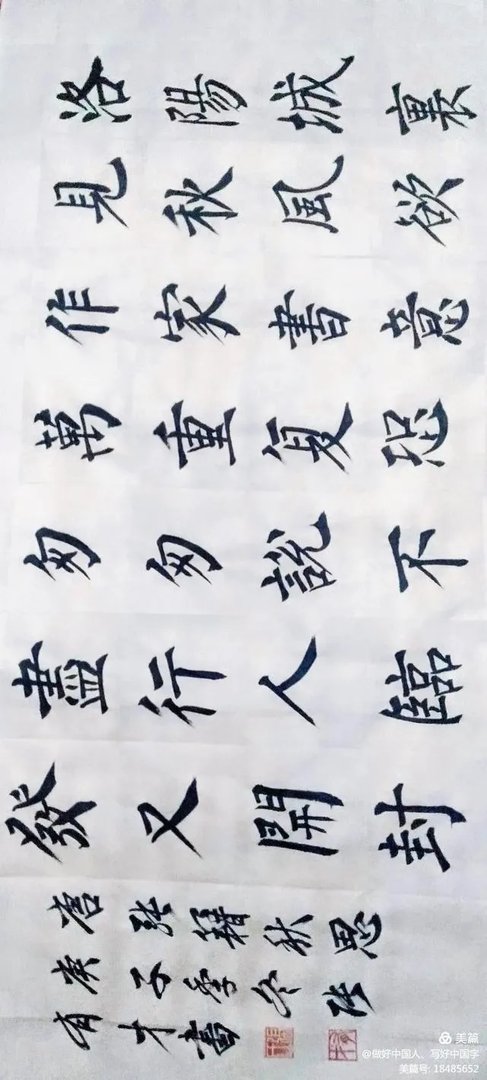 洛陽城裏
見秋風欲
作家書意
萬重复恐
匆匆說不
盡行人臨
發又開封
唐張籍秋思
庚子季冬
有才書
美篇
@做好中国人、写好中国字
美篇号: 18485652